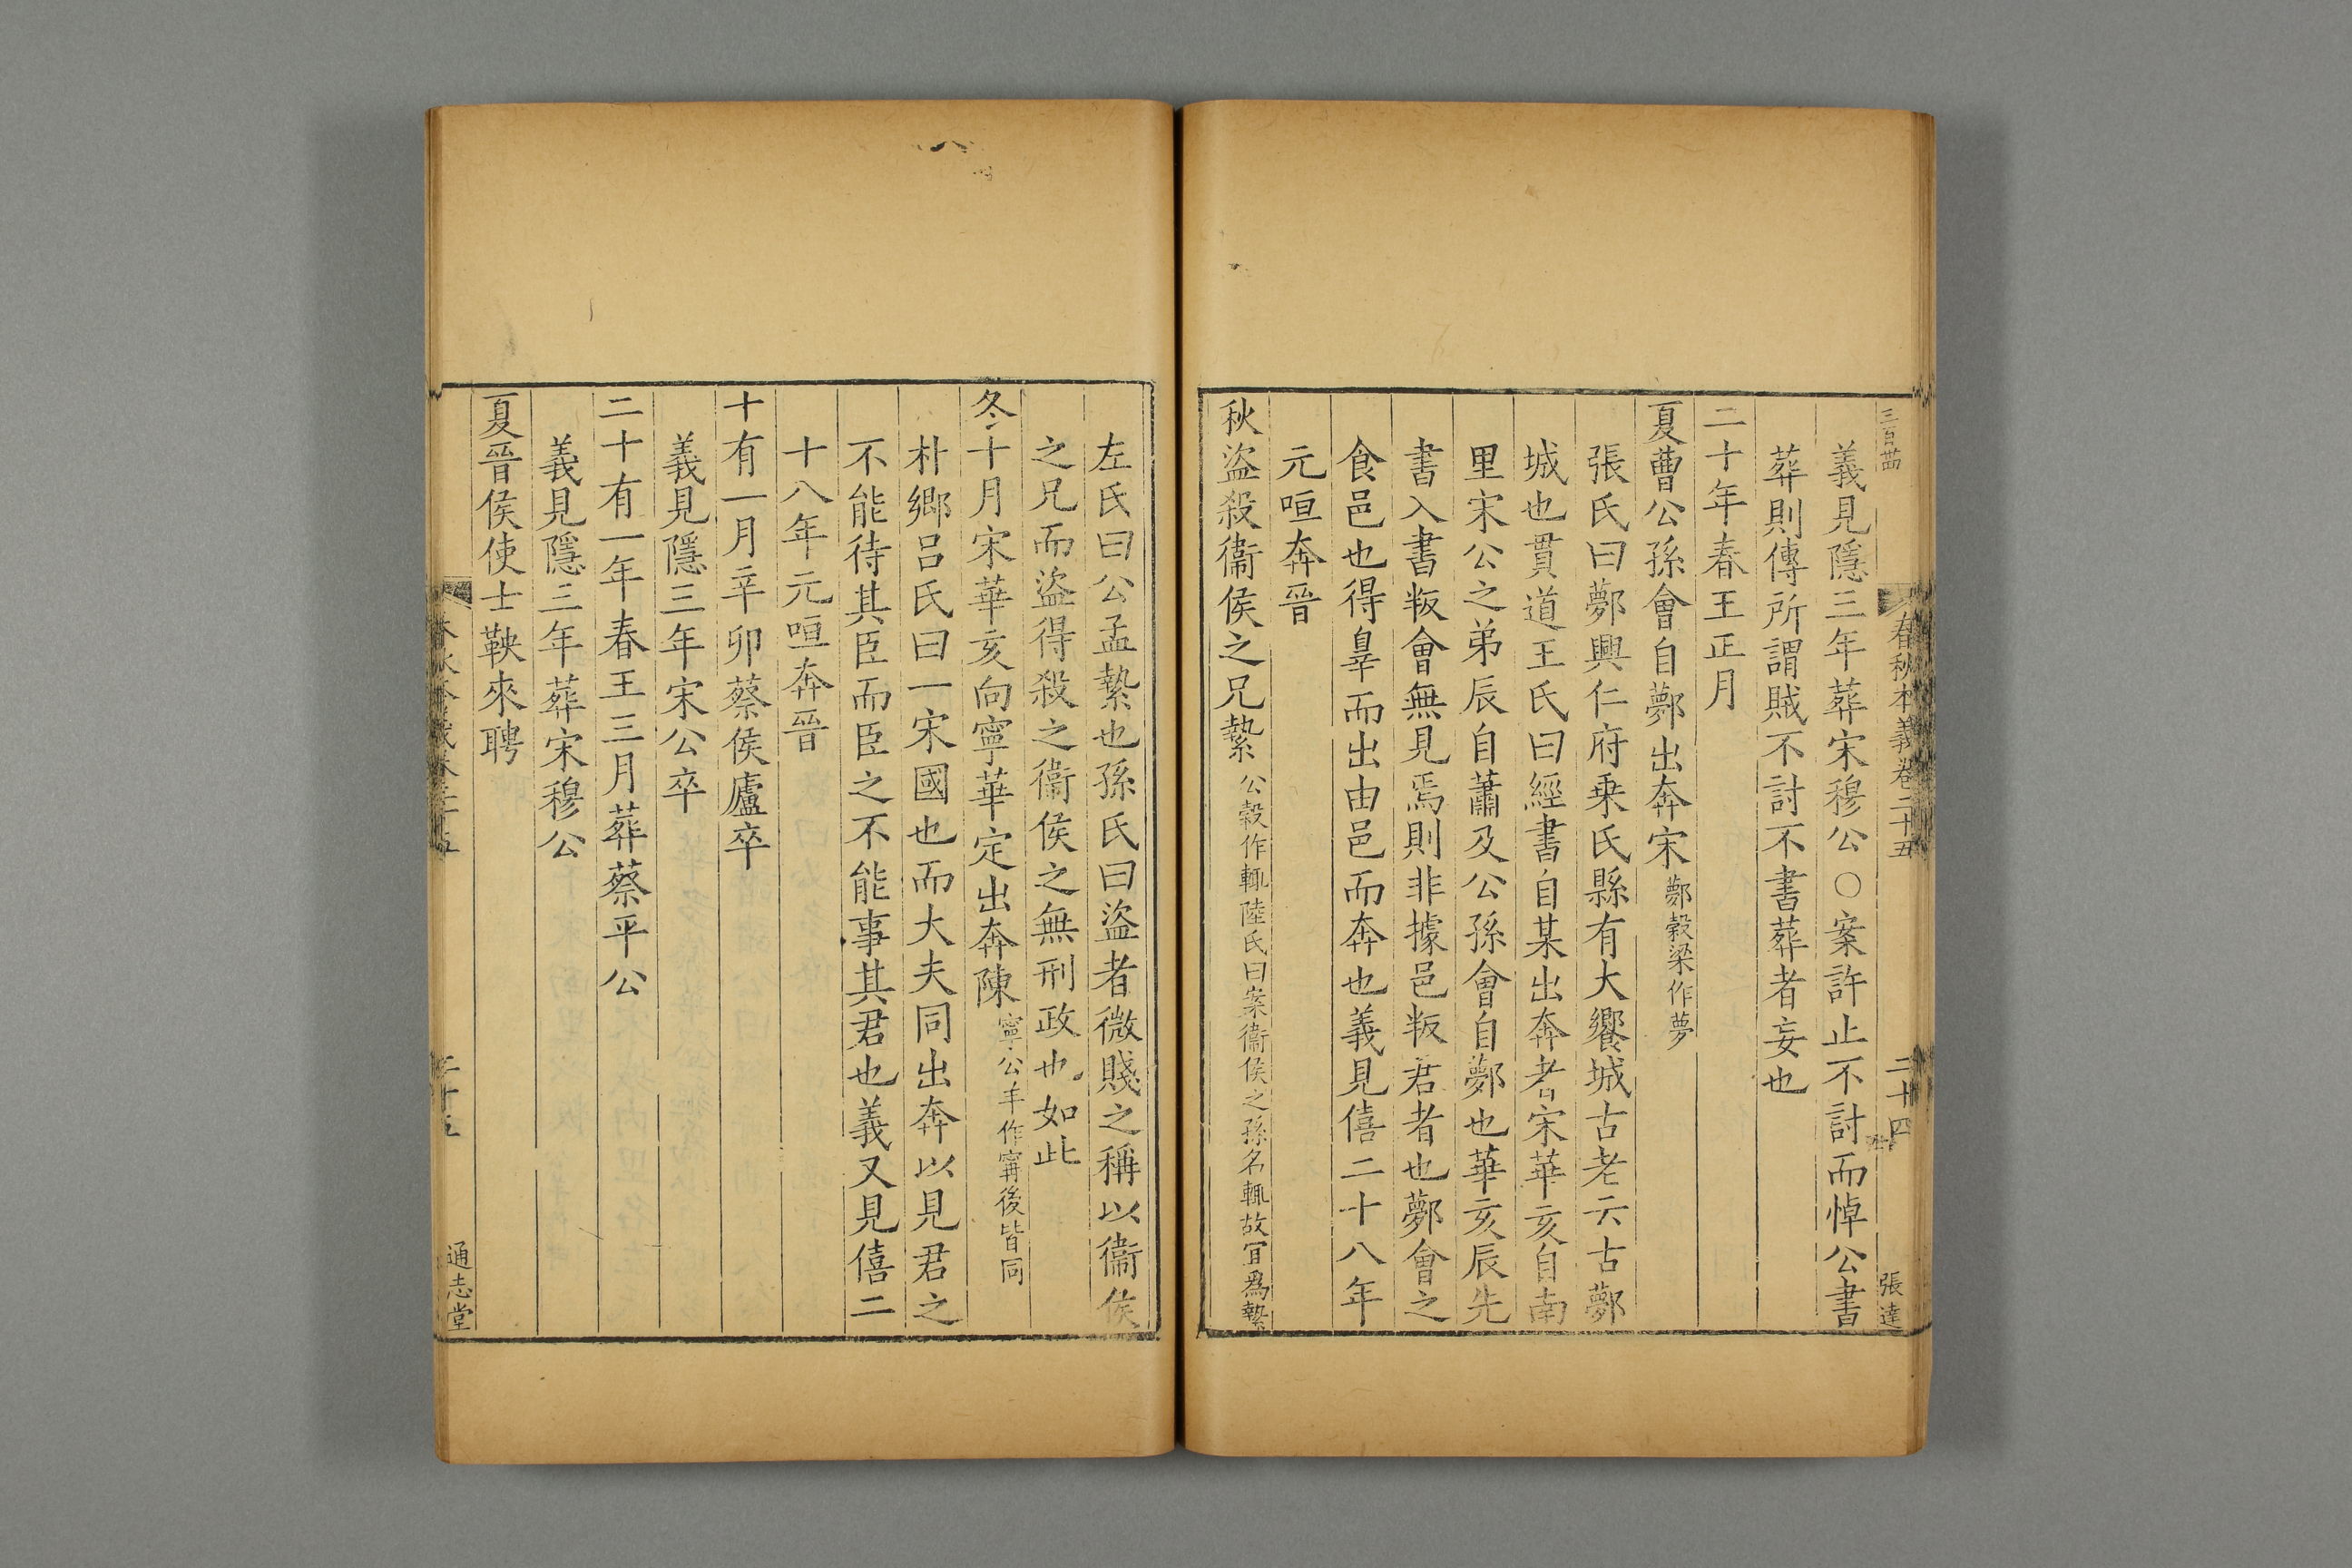 三百苗
春秋本義卷二十五
二十四
張達
義見隱三年葬宋穆公○案許止不討而悼公書
葬則傳所謂賊不討不書葬者妄也
二十年春王正月
夏曹公孫會自鄸出奔宋鄸穀梁作夢
張氏曰鄸興仁府乗氏縣有大饗城古老云古鄸
城也貫道王氏曰經書自某出奔者宋華亥自南
里宋公之弟辰自蕭及公孫會自鄸也華亥辰先
書入書叛會無見焉則非據邑叛君者也鄸會之
食邑也得辠而出由邑而奔也義見僖二十八年
元咺奔晉
秋盜殺衞侯之兄縶公穀作輒陸氏曰案衞侯之孫名輒故宜爲縶
左氏曰公孟縶也孫氏曰盜者微賤之稱以衞侯
之兄而盜得殺之衞侯之無刑政也如此
冬十月宋華亥向寧華定出奔陳寧公羊作甯後皆同
朴鄉呂氏曰一宋國也而大夫同出奔以見君之
不能待其臣而臣之不能事其君也義又見僖二
十八年元咺奔晉
十有一月辛卯蔡侯廬卒
義見隱三年宋公卒
二十有一年春王三月葬蔡平公
義見隱三年葬宋穆公
夏晉侯使士鞅來聘
二十五
通志堂